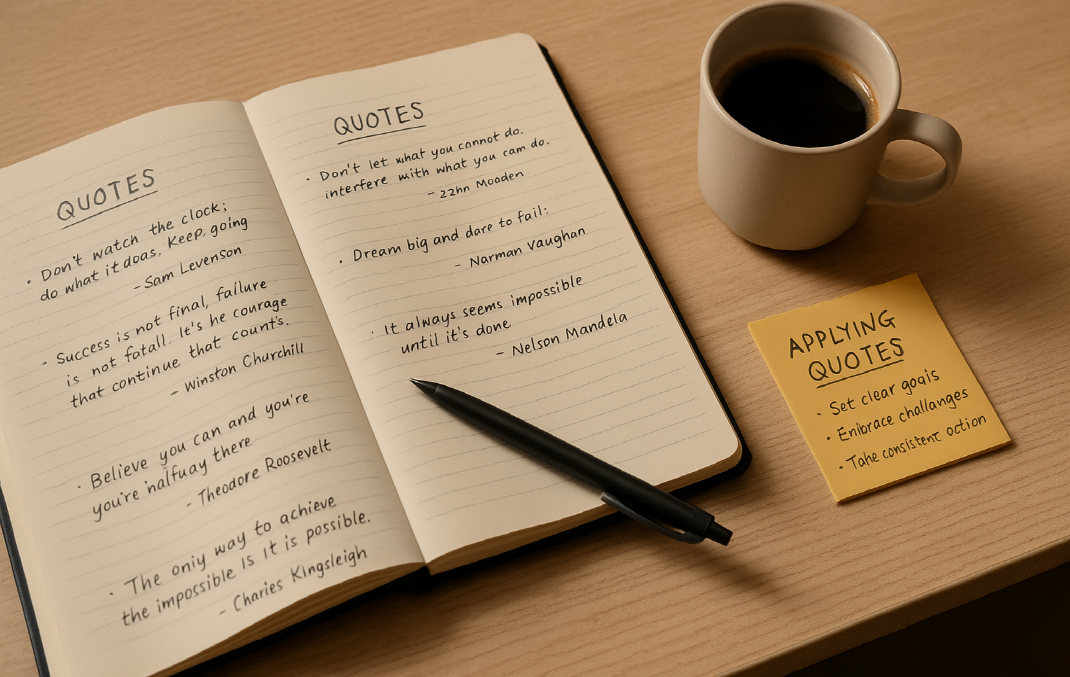 QUOTES
· Don't watch the clock;
do what it doas. Keep. going
- Sam Levenson
· Success is not final, failure
is not fatall. It's he courage
that continue that count's.
- Winston Churchill
· Believe you can and you're
you're halfuay there
- Theodore Roosevelt
· The oniy way to achieve
the impossible is it is possible.
- Charies KIngsleigh
QUOTES
· Don't let what you cannot do.
interfere with what you can do.
- 22hn Mooden
· Dream big and dare to fail:
- Narman Vaughan
· It always seems impossible
until it's done
- Nelson Mandela
APPLYING
QUOTES
· Set clear goais
· Enibrace challanges
· Take consistent oction